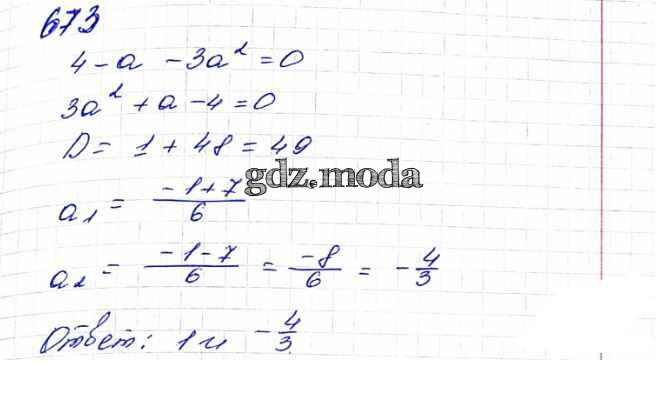 673
4 - a - 3a² = 0
3a² + a - 4 = 0
D = 1 + 48 = 49
gdz.moda
a₁ = (-1+7)/6
a₂ = (-1-7)/6 = -8/6 = -4/3
Ответ: 1 и -4/3